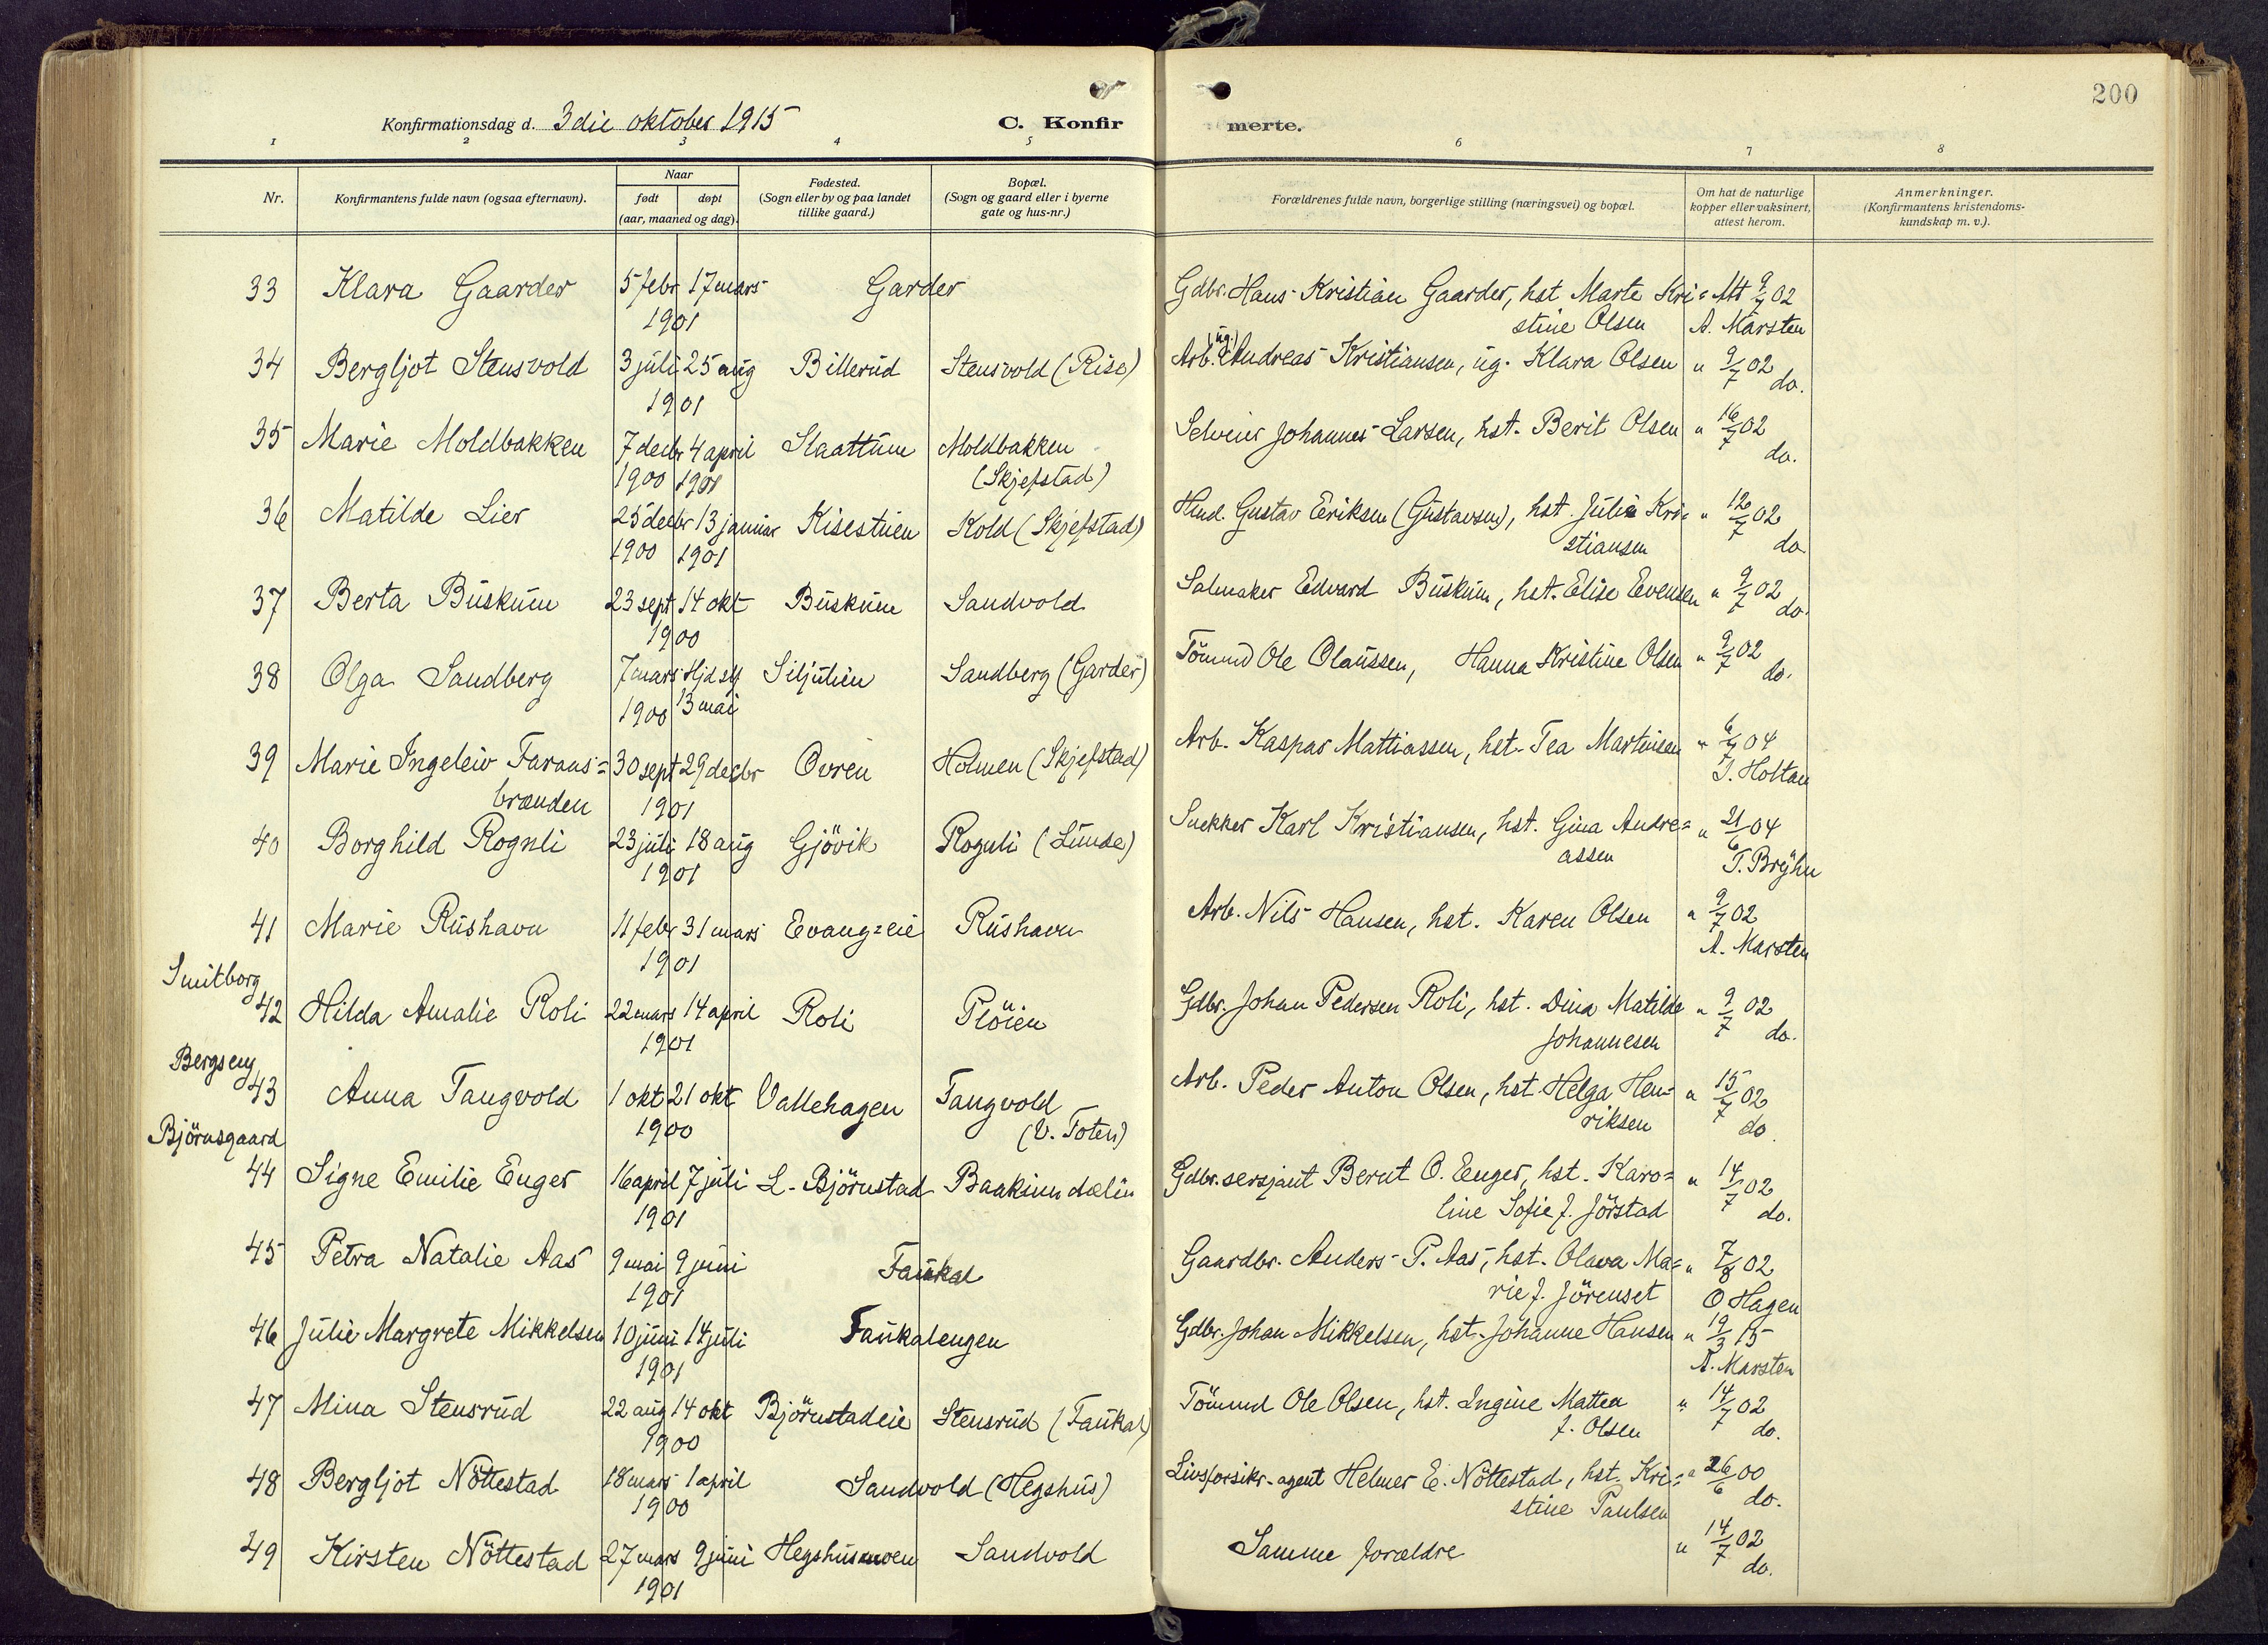 200
Konfirmationsdag d. 3die oktober 1915
C. Konfirmerte.
1 2 3 4 5 6 7 8
Nr.
Konfirmantens fulde navn (ogsaa efternavn).
Naar
født døpt
(aar, maaned og dag).
Fødested.
(Sogn eller by og paa landet
tillike gaard.)
Bopæl.
(Sogn og gaard eller i byerne
gate og hus-nr.)
Forældrenes fulde navn, borgerlige stilling (næringsvei) og bopæl.
Om hat de naturlige
kopper eller vaksinert,
attest herom.
Anmerkninger.
(Konfirmantens kristendoms-
kundskap m. v.).
33 Klara Gaarder 5 febr 17 mars Garder Gdbr. Hans Kristian Gaarder, hst Marte Kri= Att 9/7 02
1901 stine Olsen A. Marsten
34 Bergljot Stensvold 3 júli 25 aúg Billerúd Stensvold (Rise) Arb. (úg.) Andreas Kristiansen, úg. Klara Olsen " 9/7 02
1901 do.
35 Marie Moldbakken 7 decbr 4 april Slaattúm Moldbakken Selveier Johannes Larsen, hst. Berit Olsen " 16/7 02
1900 1901 (Skjefstad) do.
36 Matilde Lier 25 decbr 13 janúar Kisestúen Kold (Skjefstad) Húsmd. Gustav Eriksen (Gústavsen), hst. Júlie Kri= " 12/7 02
1900 1901 stiansen do.
37 Berta Búskúm 23 sept 14 okt Búskúm Sandvold Salmaker Edvard Búskúm, hst. Elise Evensen " 9/7 02
1900 do.
38 Olga Sandberg 7 mars Hjd 24/4 Siljúlien Sandberg (Garder) Tömmd Ole Olaússen, Hanna Kristine Olsen " 9/7 02
1900 13 mai do.
39 Marie Ingeleiv Faraas= 30 sept 29 decbr Ovren Holmen (Skjefstad) Arb. Kaspar Mattiassen, hst. Tea Martinsen " 6/7 04
brænden 1901 J. Holtan
40 Borghild Rognli 23 júli 18 aúg Gjövik Rognli (Lúnde) Snekker Karl Kristiansen, hst. Gina Andre= " 21/6 04
1901 assen T. Brÿhn
41 Marie Rúshavn 11 febr 31 mars Evang=eie Rúshavn Arb. Nils Hansen, hst. Karen Olsen " 9/7 02
1901 A. Marsten
Smitborg
42 Hilda Amalie Roli 22 mars 14 april Roli Plöien Gdbr. Johan Pedersen Roli, hst. Dina Matilde " 9/7 02
1901 Johannesen do.
Bergseng
43 Anna Tangvold 1 okt 21 okt Vallehagen Tangvold Arb. Peder Anton Olsen, hst. Helga Hen= " 15/7 02
1900 (V. Toten) riksen do.
Björnsgaard
44 Signe Emilie Enger 16 april 7 júli L. Björnstad Baaksindælin Gdbr. sersjant Bernt O. Enger, hst. Karo= " 14/7 02
1901 line Sofie J. Jörstad do.
45 Petra Natalie Aas 9 mai 9 júni Faúkal Gaardbr. Anders P. Aas, hst. Olava Ma= " 7/8 02
1901 rie J. Jörenset O Hagen
46 Júlie Margrete Mikkelsen 10 júni 14 júli Faúkalengen Gdbr. Johan Mikkelsen, hst. Johanne Hansen " 19/3 15
1901 A. Marsten
47 Mina Stensrúd 22 aúg 14 okt Björnstadeie Stensrúd (Faúkal) Tömmd Ole Olsen, hst. Ingine Mattea " 14/7 02
1900 J. Olsen do.
48 Bergljot Nöttestad 18 mars 1 april Sandvold (Hegshús) Livsforsikr. agent Helmer E. Nöttestad, hst. Kri= " 26/6 00
1900 stine Paulsen do.
49 Kirsten Nöttestad 27 mars 9 júni Sandvold Samme forældre " 14/7 02
1901 do.